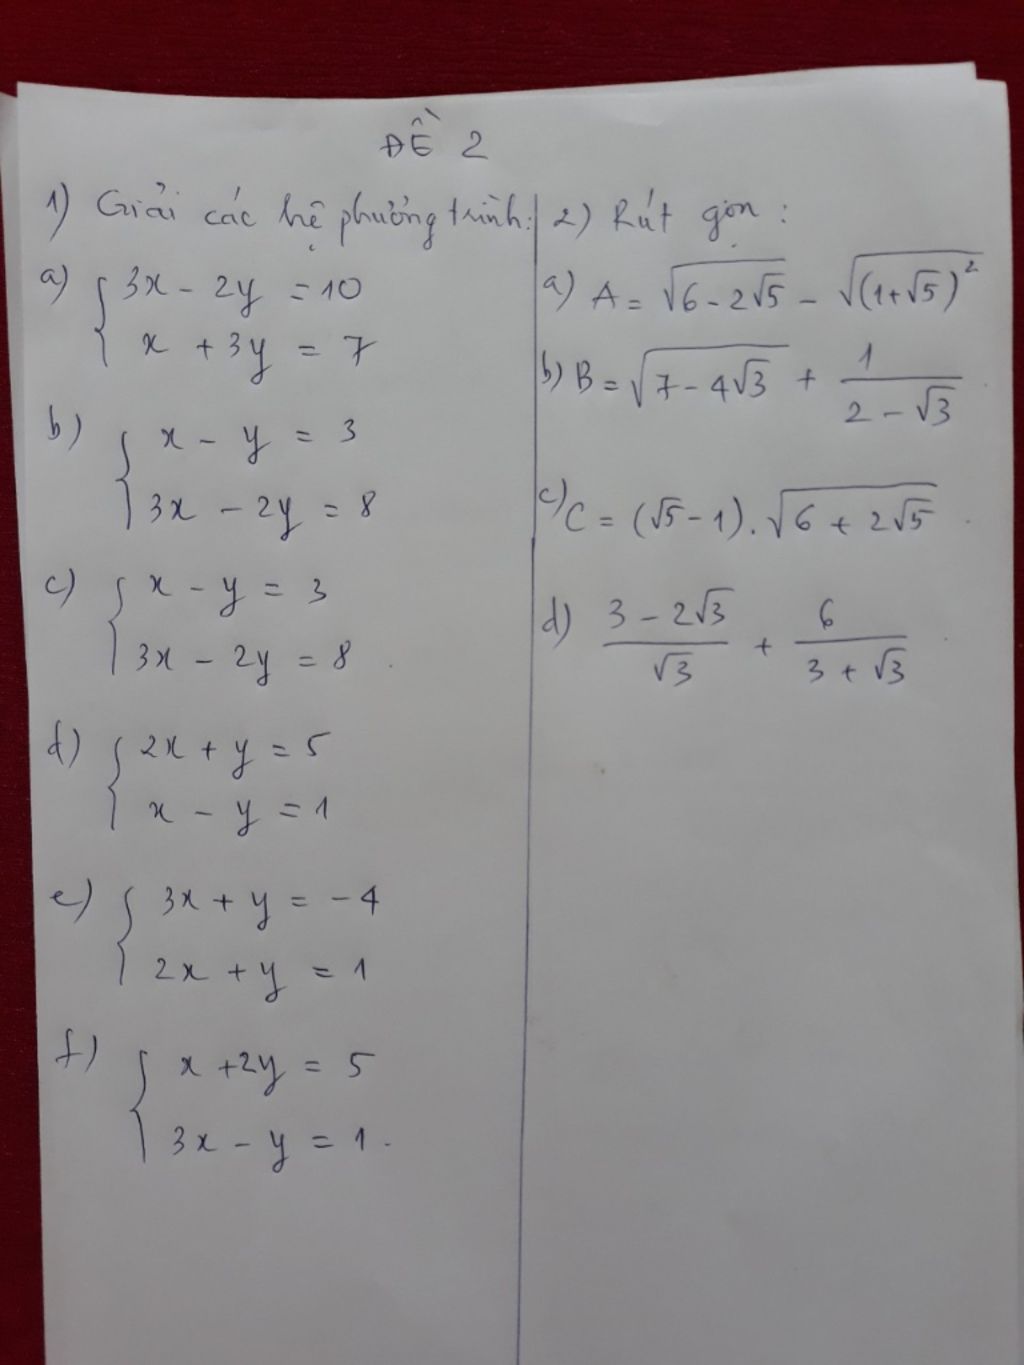 ĐỀ 2
1) Giải các hệ phương trình:
a) { 3x - 2y = 10
x + 3y = 7
b) { x - y = 3
3x - 2y = 8
c) { x - y = 3
3x - 2y = 8
d) { 2x + y = 5
x - y = 1
e) { 3x + y = -4
2x + y = 1
f) { x + 2y = 5
3x - y = 1.
2) Rút gọn:
a) A = √(6 - 2√5) - √((1+√5)²)
b) B = √(7 - 4√3) + 1/(2 - √3)
c) C = (√5 - 1). √(6 + 2√5)
d) (3 - 2√3)/√3 + 6/(3 + √3)